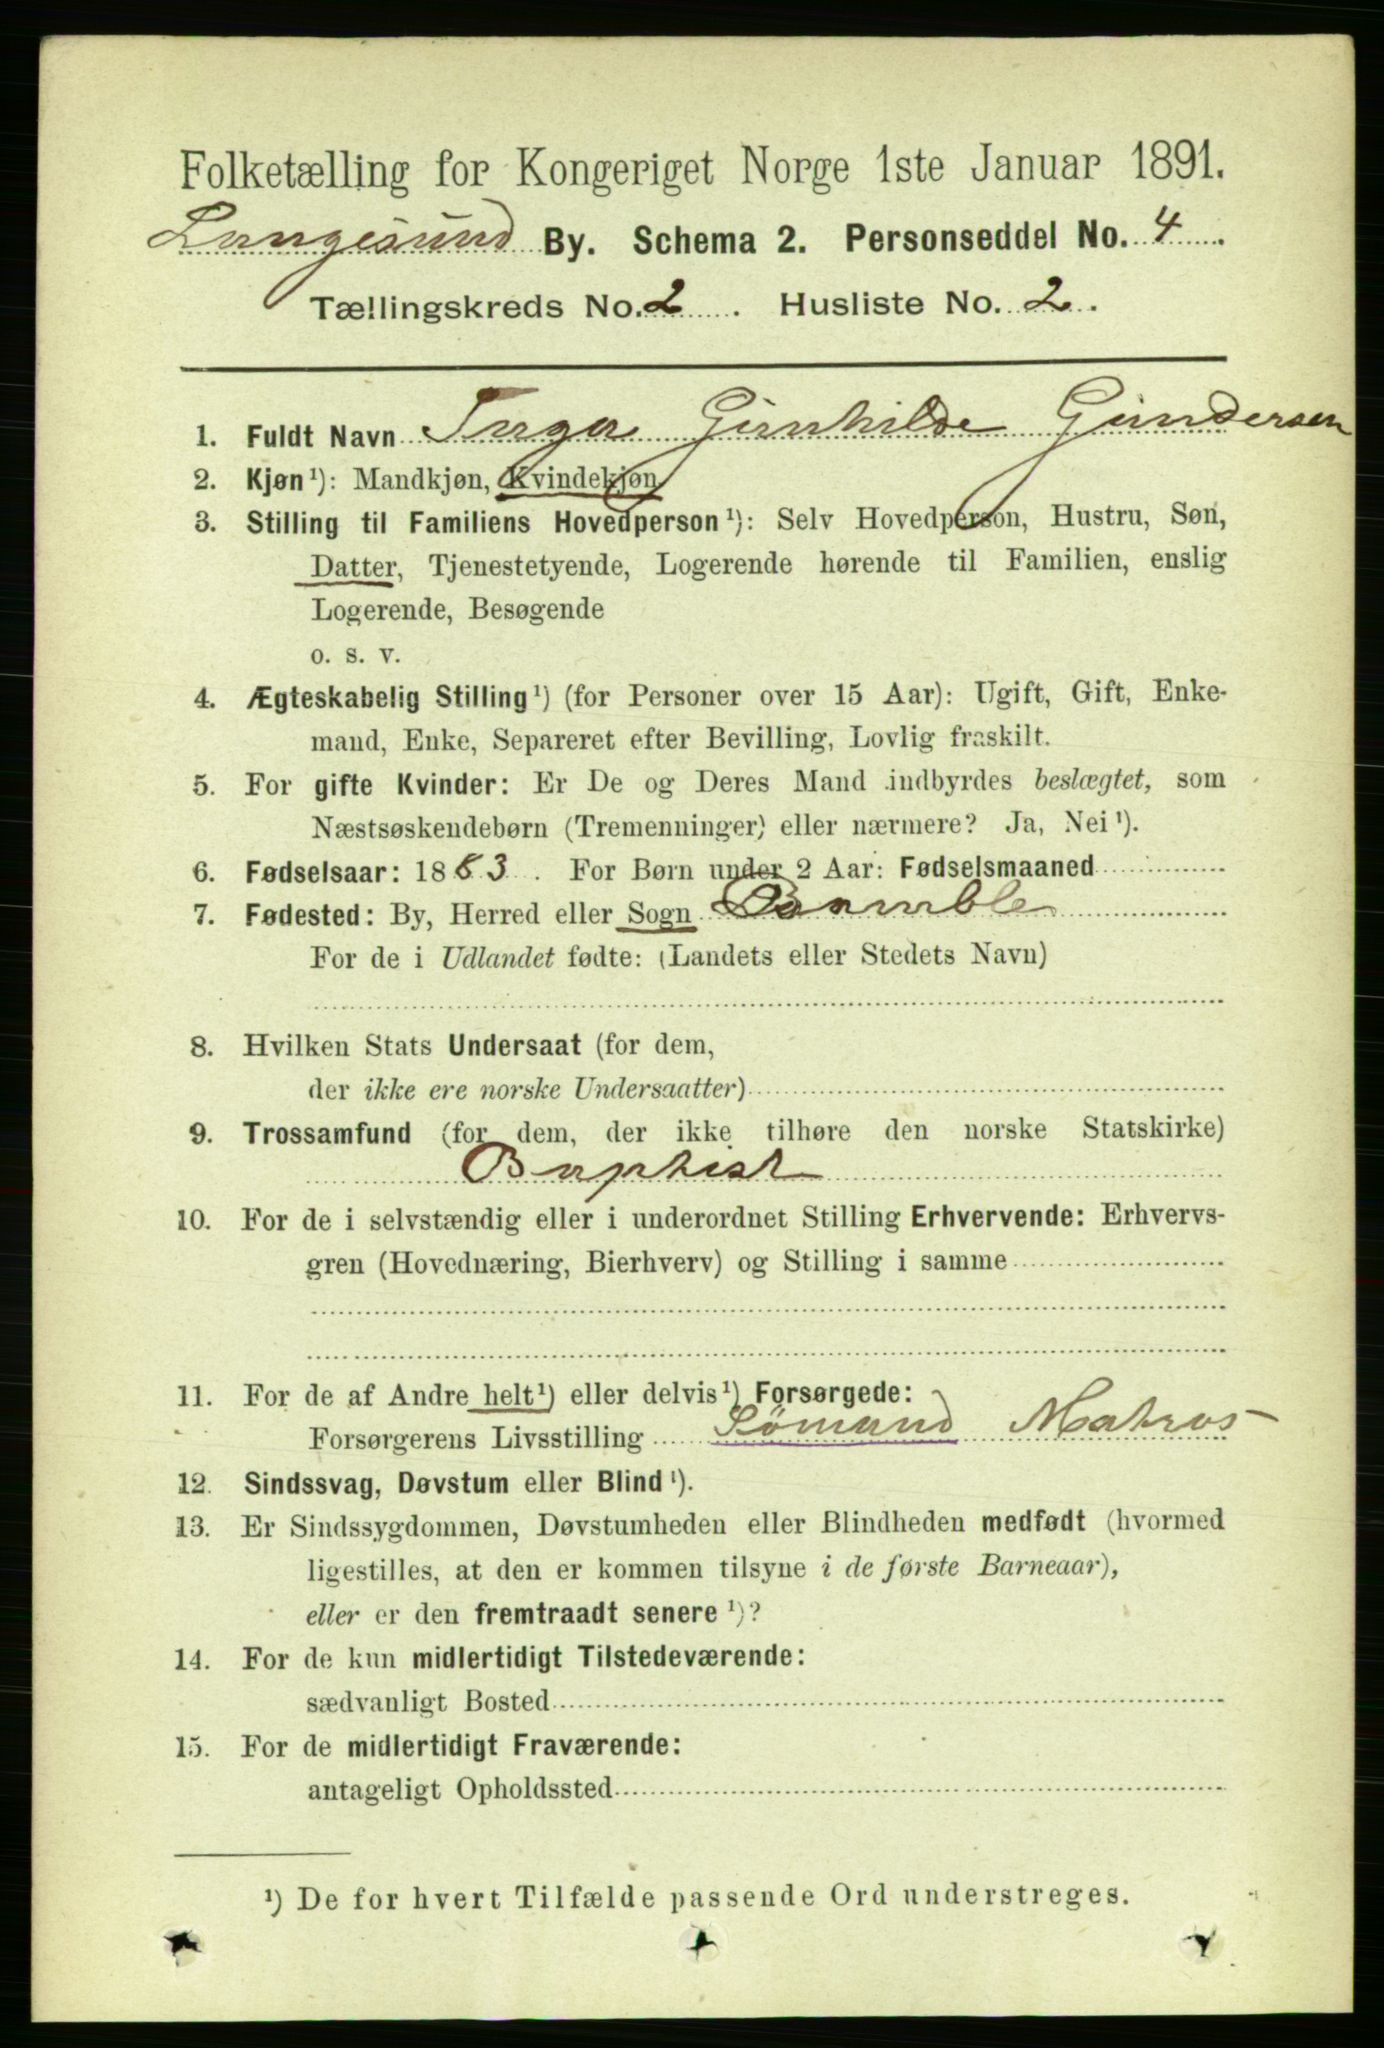 Folketælling for Kongeriget Norge 1ste Januar 1891.
Langesund By. Schema 2. Personseddel No. 4.
Tællingskreds No. 2. Husliste No. 2.
1. Fuldt Navn Inga Gunhilde Gundersen
2. Kjøn¹): Mandkjøn, Kvindekjøn
3. Stilling til Familiens Hovedperson¹): Selv Hovedperson, Hustru, Søn,
Datter, Tjenestetyende, Logerende hørende til Familien, enslig
Logerende, Besøgende
o. s. v.
4. Ægteskabelig Stilling¹) (for Personer over 15 Aar): Ugift, Gift, Enke-
mand, Enke, Separeret efter Bevilling, Lovlig fraskilt.
5. For gifte Kvinder: Er De og Deres Mand indbyrdes beslægtet, som
Næstsøskendebørn (Tremenninger) eller nærmere? Ja, Nei¹).
6. Fødselsaar: 1883. For Børn under 2 Aar: Fødselsmaaned
7. Fødested: By, Herred eller Sogn Bamble
For de i Udlandet fødte: (Landets eller Stedets Navn)
8. Hvilken Stats Undersaat (for dem,
der ikke ere norske Undersaatter)
9. Trossamfund (for dem, der ikke tilhøre den norske Statskirke)
Baptist
10. For de i selvstændig eller i underordnet Stilling Erhvervende: Erhvervs-
gren (Hovednæring, Bierhverv) og Stilling i samme
11. For de af Andre helt¹) eller delvis¹) Forsørgede:
Forsørgerens Livsstilling Sømand Matros
12. Sindssvag, Døvstum eller Blind¹).
13. Er Sindssygdommen, Døvstumheden eller Blindheden medfødt (hvormed
ligestilles, at den er kommen tilsyne i de første Barneaar),
eller er den fremtraadt senere¹)?
14. For de kun midlertidigt Tilstedeværende:
sædvanligt Bosted
15. For de midlertidigt Fraværende:
antageligt Opholdssted
¹) De for hvert Tilfælde passende Ord understreges.